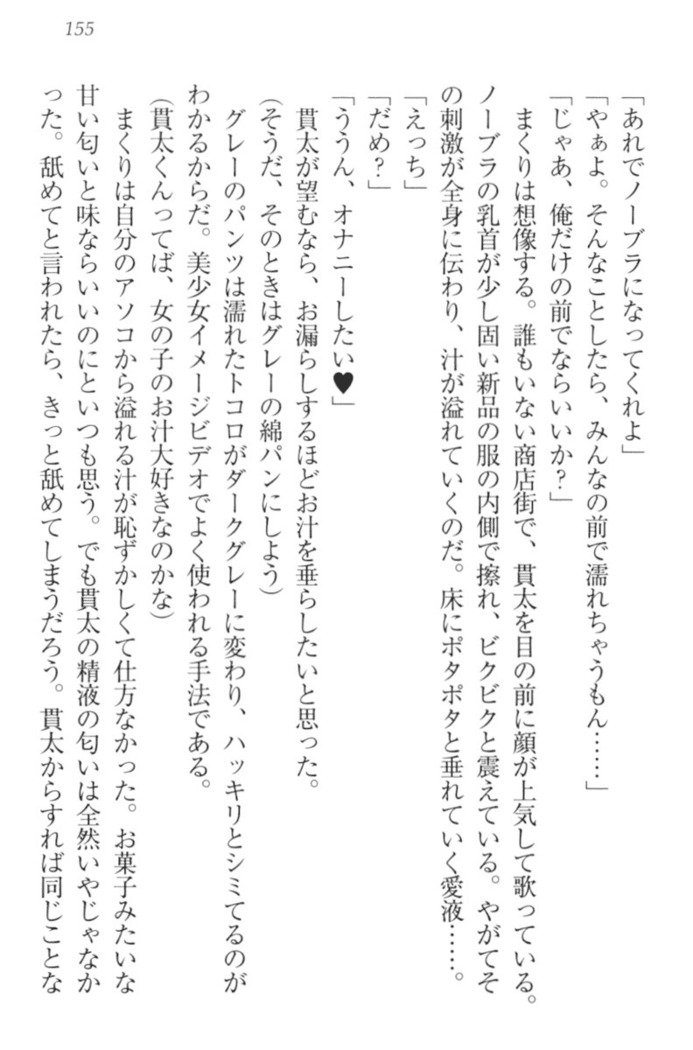 155
「あれでノーブラになってくれよ」
「やぁよ。そんなことしたら、みんなの前で濡れちゃうもん……」
「じゃあ、俺だけの前でならいいか?」
まくりは想像する。誰もいない商店街で、貫太を目の前に顔が上気して歌っている。
ノーブラの乳首が少し固い新品の服の内側で擦れ、ビクビクと震えている。やがてそ
の刺激が全身に伝わり、汁が溢れていくのだ。床にポタポタと垂れていく愛液……。
「えっち」
「だめ?」
「ううん、オナニーしたい♥」
貫太が望むなら、お漏らしするほどお汁を垂らしたいと思った。
(そうだ、そのときはグレーの綿パンにしよう)
グレーのパンツは濡れたトコロがダークグレーに変わり、ハッキリとシミてるのが
わかるからだ。美少女イメージビデオでよく使われる手法である。
(貫太くんってば、女の子のお汁大好きなのかな)
まくりは自分のアソコから溢れる汁が恥ずかしくて仕方なかった。お菓子みたいな
甘い匂いと味ならいいのにといつも思う。でも貫太の精液の匂いは全然いやじゃなか
った。舐めてと言われたら、きっと舐めてしまうだろう。貫太からすれば同じことな